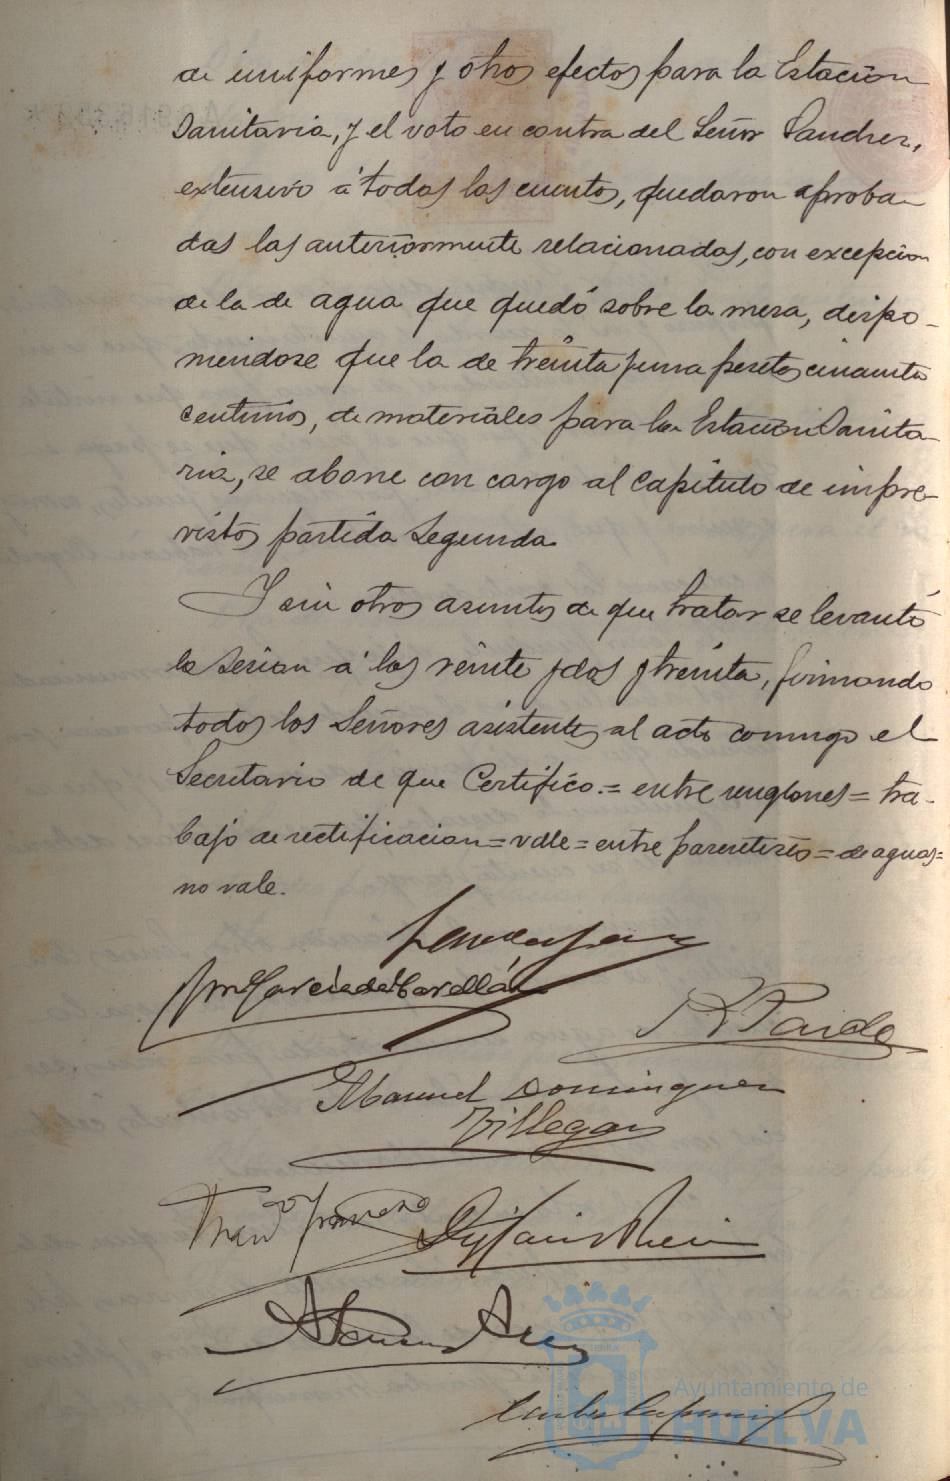 de uniformes y otros efectos para la Estación
Sanitaria, y el voto en contra del Señor Sanchez,
extensivo á todas las cuentas, quedaron aproba-
das las anteriormente relacionadas, con excepcion
de la de agua que quedó sobre la mesa, dispo-
niendose que la de treinta y una pesetas cincuenta
centimos, de materiales para la Estacion Sanita-
ria, se abone con cargo al Capitulo de impre-
vistos partida Segunda
Y sin otros asuntos de que tratar se levantó
la Sesion á las veinte y dos y treinta, firmando
todos los Señores asistentes al acto conmigo el
Secretario de que Certifico.= entre renglones = tra-
bajo de rectificacion = vale = entre parentesis = de aguas =
no vale.
R Pardo
Manuel Dominguez
Villegas
Ayuntamiento de
HUELVA